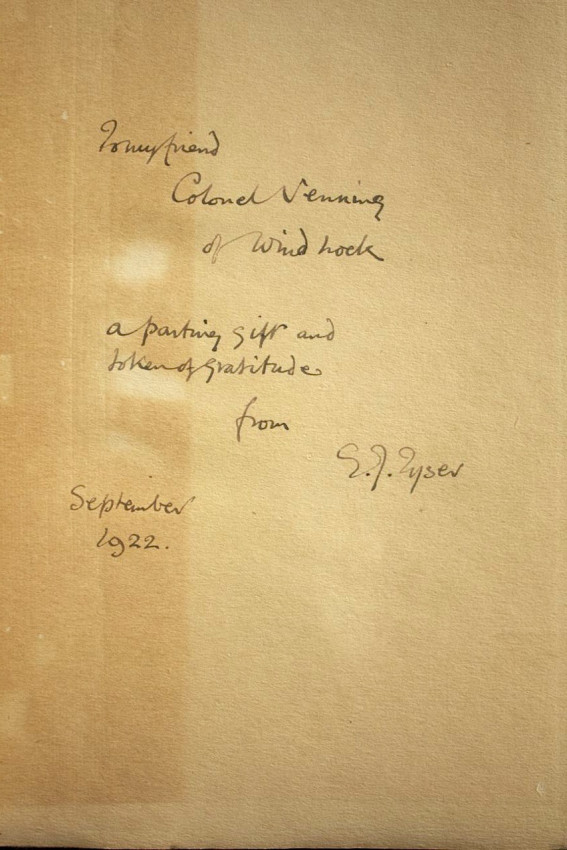 To my friend
Colonel Venning
of Windhoek
a parting gift and
token of gratitude
from
E. J. Tyser
September
1922.